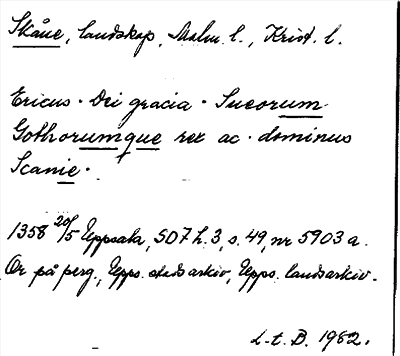 Skåne, landskap, Malm. l., Krist. l.
Ericus · Dei gracia · Sueorum
Gothorumque rex ac · dominus
Scanie ·
1358 20/5 Uppsala, SD 7 h. 3, s. 49, nr 5903 a.
Or på perg., Upps. stadsarkiv, Upps. landsarkiv.
L-t. B. 1962.